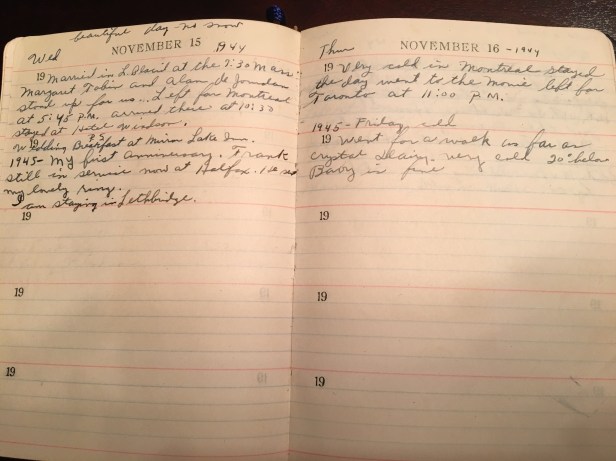 beautiful day no snow
Wed
NOVEMBER 15 1944
19 Married in L. Placid at the 7:30 Mass.
Margaret Tobin and Alan de
stood up for us... Left for Montreal
at 5:45 P.M. arrived there at 10:30
stayed at Hotel Windsor.
Wedding Breakfast at Mirror Lake Inn.
1945 - My first Anniversary. Frank
still in service now at Halifax.
my lovely ring.
I am staying in Lethbridge.
19
19
19
Thur NOVEMBER 16 - 1944
19 Very cold in Montreal stayed
the day went to the movie left for
Toronto at 11:00 P.M.
1945 - Friday cold
19 Went for a walk as far as
Crystal Dairy. very cold 20° below
is fine
19
19
19